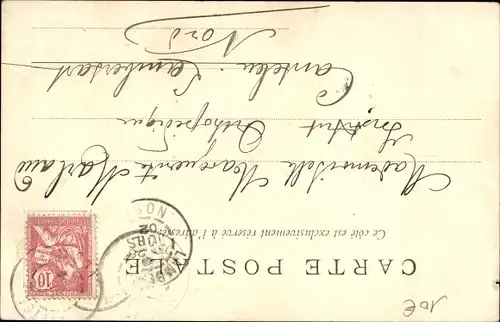 CARTE POSTALE
Ce côté est exclusivement réservé à l'adresse
10
LAMBE
NO
02
Mademoiselle Marguerite
Institut Orthopédique
Canteleu Lambersart
Nord
10€